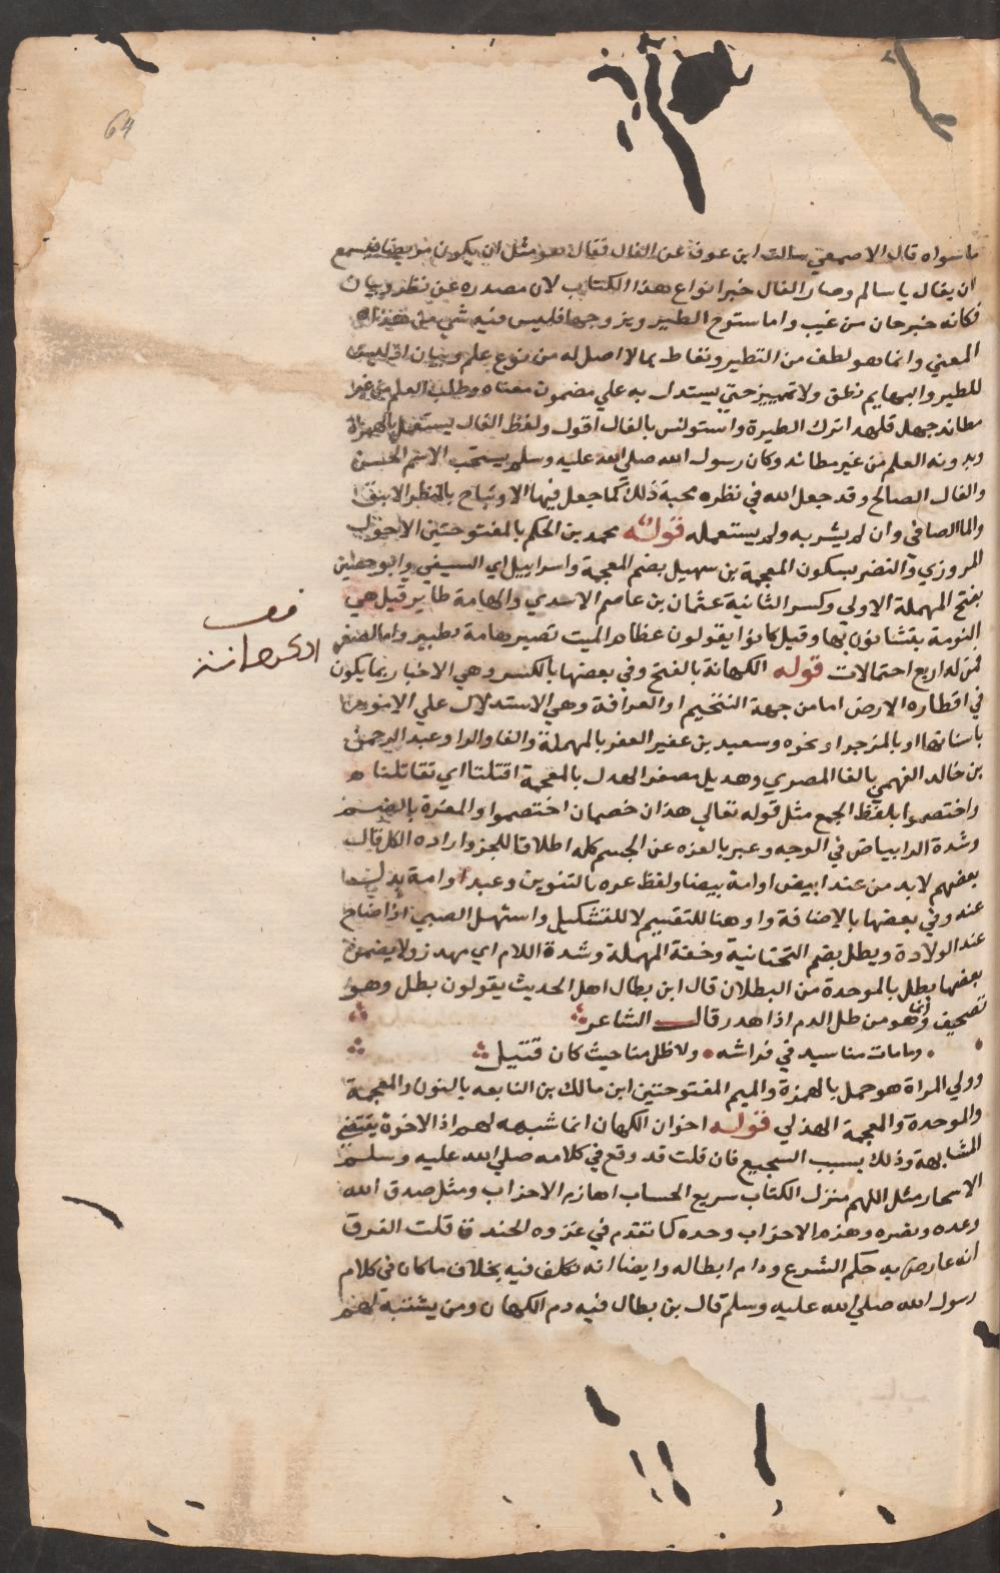 64
ما سواه قال الاصمعي سالت ابن عوف عن الفال فقال هو مثل ان يكون مريضا فيسمع
ان يقال يا سالم وصار الفال خير انواع هذا الكتاب لان مصدره عن نطق وبيان
فكانه خبر جان من غيب واما سنوح الطير وبروجها فليس فيه شي من هذا
المعني وانما هو لطف من التطير وتعاط بما لا اصل له من نوع علم وبيان اذ ليس
للطير والبهايم نطق ولا تمييز حتي يستدل به علي مضمون معناه وطلب العلم من غير
مظانه جهل فلهذا ترك الطيرة واستونس بالفال اقول ولفظ الفال يستعمل بالهمزة
وبدونه العلم من غير مظانه وكان رسول الله صلي الله عليه وسلم يستحب الاسم الحسن
والفال الصالح وقد جعل الله في نظره محبة ذلك كما جعل فيها الارتياح بالمنظر الانيق
والما الصافي وان لم يشربه ولم يستعمله قوله محمد بن الحكم بالمفتوحتين الاحول
المروزي والنضر بسكون المعجمة بن سهيل بضم المعجمة واسراييل اي السبيعي وابو حصين
بفتح المهملة الاولي وكسر الثانية عثمان بن عاصم الاسدي والهامة طاير قيل هي
البومة يتشائون بها وقيل كانوا يقولون عظام الميت تصير هامة تطير واما الصفر
فمن له اربع احتمالات قوله الكهانة بالفتح وفي بعضها بالكسر وهي الاخبار بما يكون
في اقطاره الارض اما من جهة التنجيم او العرافة وهي الاستدلال علي الامور
باسبابها او بالزجر او نحوه وسعيد بن عفير العفر بالمهملة والفا والرا وعبد الرحمن
بن خالد الفهمي بالفا المصري وهديل مصغر الهدل بالمعجمة اقتلتا اي تقاتلتا
واختصموا بلفظ الجمع مثل قوله تعالي هذان خصمان اختصموا والغرة بالضم
وشدة الرا بياض في الوجه وعبر بالغره عن الجسم كله اطلاقا للجز واراده الكل قال
بعضهم لا بد من عند ابيض او امة بيضا ولفظ غره بالتنوين وعبد او امة بدل
عنه وفي بعضها بالاضافة واو هنا للتقسيم لا للتشكيل واستهل الصبي اذا صاح
عند الولادة ويطل بضم التحتانية وخفة المهملة وشدة اللام اي يهدر ولا يضمن وفي
بعضها بطل بالموحدة من البطلان قال ابن بطال اهل الحديث يقولون بطل وهو
تصحيف وانما هو من طل الدم اذا هدر قال الشاعر
وما مات منا سيد في فراشه ولا ظل منا حيث كان قتيل
وولي المراة هو حمل بالهمزة والميم المفتوحتين ابن مالك بن النابغه بالنون والمعجمة
والموحدة والمعجمة الهذلي قوله اخوان الكهان انما شبهه لهم اذ الاخوة يقتضي
المشابهة وذلك بسبب السجيع فان قلت قد وقع في كلامه صلي الله عليه وسلم
الاسجار مثل اللهم منزل الكتاب سريع الحساب اهازم الاحزاب ومثل صدق الله
وعده ونصره وهزم الاحزاب وحده كما تقدم في غزوه الخندق قلت الفرق
انه عارض به حكم الشرع ورام ابطاله وايضا انه تكلف فيه بخلاف ما كان في كلام
رسول الله صلي الله عليه وسلم قال بن بطال فيه دم الكهان ومن يشتبه لهم
الكهانة